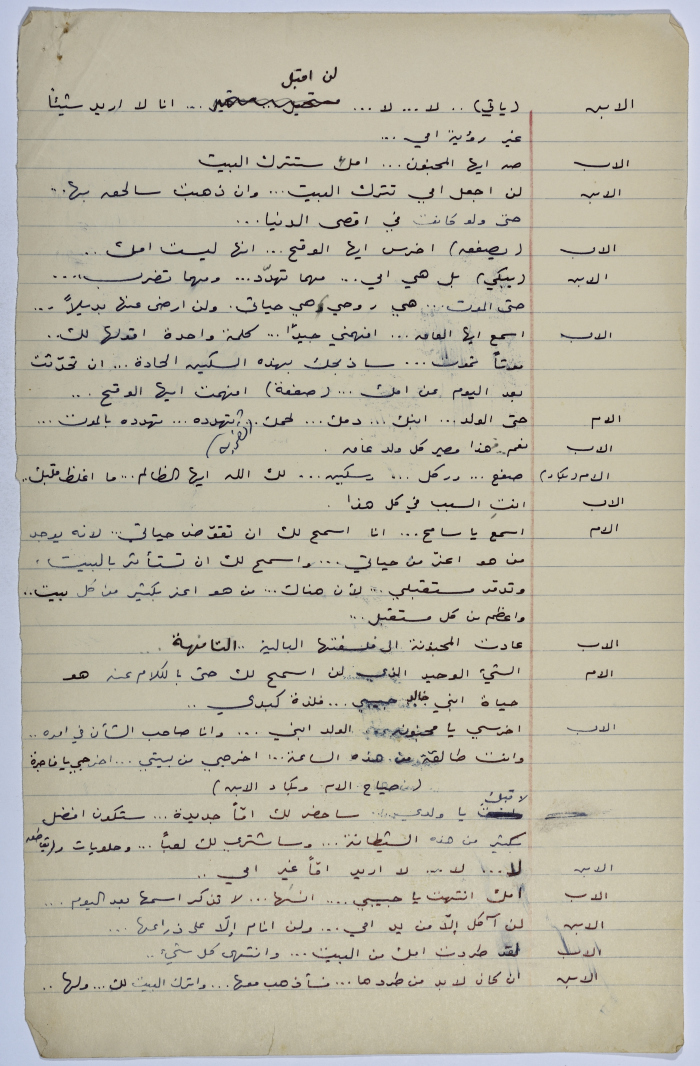 لن اقبل
الابن (ياتي) .. لا ... لا ... مستحيل .. مستحيل ... انا لا اريد شيئاً
غير رؤية امي ...
الاب صه ايها المجنون ... امك ستترك البيت
الابن لن اجعل امي تترك البيت ... وان ذهبت سالحقه بها ..
حتى ولو كانت في اقصى الدنيا ...
الاب (يصفعه) اخرس ايها الوقح ... انها ليست امك ..
الابن (يبكي) بل هي امي ... مهما تهدّد ... ومهما تضرب ....
حتى الموت ... هي روحي وهي حياتي . ولن ارضى عنها بديلاً ...
الاب اسمع ايها العاق ... افهمني جيداً ... كلمة واحدة اقولها لك ..
موتاً تموت ... ساذبحك بهذه السكين الحادة ... ان تحدّثت
بعد اليوم عن امك ... (صفعة) افهمت ايها الوقح ...
الام حتى الولد ... ابنك ... دمك ... لحمك .. تهدده ... تهدده بالموت ...
الاب نعم هذا مصير كل ولد عاق .
الام (بكاء) صفع ... وركل ... وسكين ... لك الله ايها الظالم ... ما اغلظ قلبك ..
الاب انتِ السبب في كل هذا .
الام اسمع يا سامح ... انا اسمح لك ان تقوّض حياتي .. لانه يوجد
من هو اعز من حياتي ... واسمح لك ان تستأثر بالبيت .
وتدمّر مستقبلي ... لأن هناك ... من هو اعز بكثير من كل بيت ..
واعظم من كل مستقبل ...
الاب عادت المجنونة الى فلسفتها البالية .. التافهة ..
الام الشيء الوحيد الذي لن اسمح لك حتى بالكلام عنه هو
حياة ابني خالد حبيبي ... فلذة كبدي ..
الاب اخرسي يا مجنونة .. الولد ابني ... وانا صاحب الشأن في امره ..
وانت طالقة من هذه الساعة .. اخرجي من بيتي ... اخرجي يا فاجرة
(صياح الام وبكاء الابن)
لا تبك
يا ولدي ... ساحضر لك امّاً جديدة ... ستكون افضل
بكثير من هذه الشيطانة ... وساشتري لك لعباً ... وحلويات
الابن لا ... لا ... لا اريد امّاً غير امي ..
الاب امك انتهت يا حبيبي ... انسَها ... لا تذكر اسمها بعد اليوم ...
الابن لن آكل إلّا من يد امي ... ولن انام إلّا على ذراعها ...
الاب لقد طردت امك من البيت ... وانتهى كل شيء ..
الابن ان كان لا بد من طردها ... فسأذهب معها ... واترك البيت لك ... ولها ..